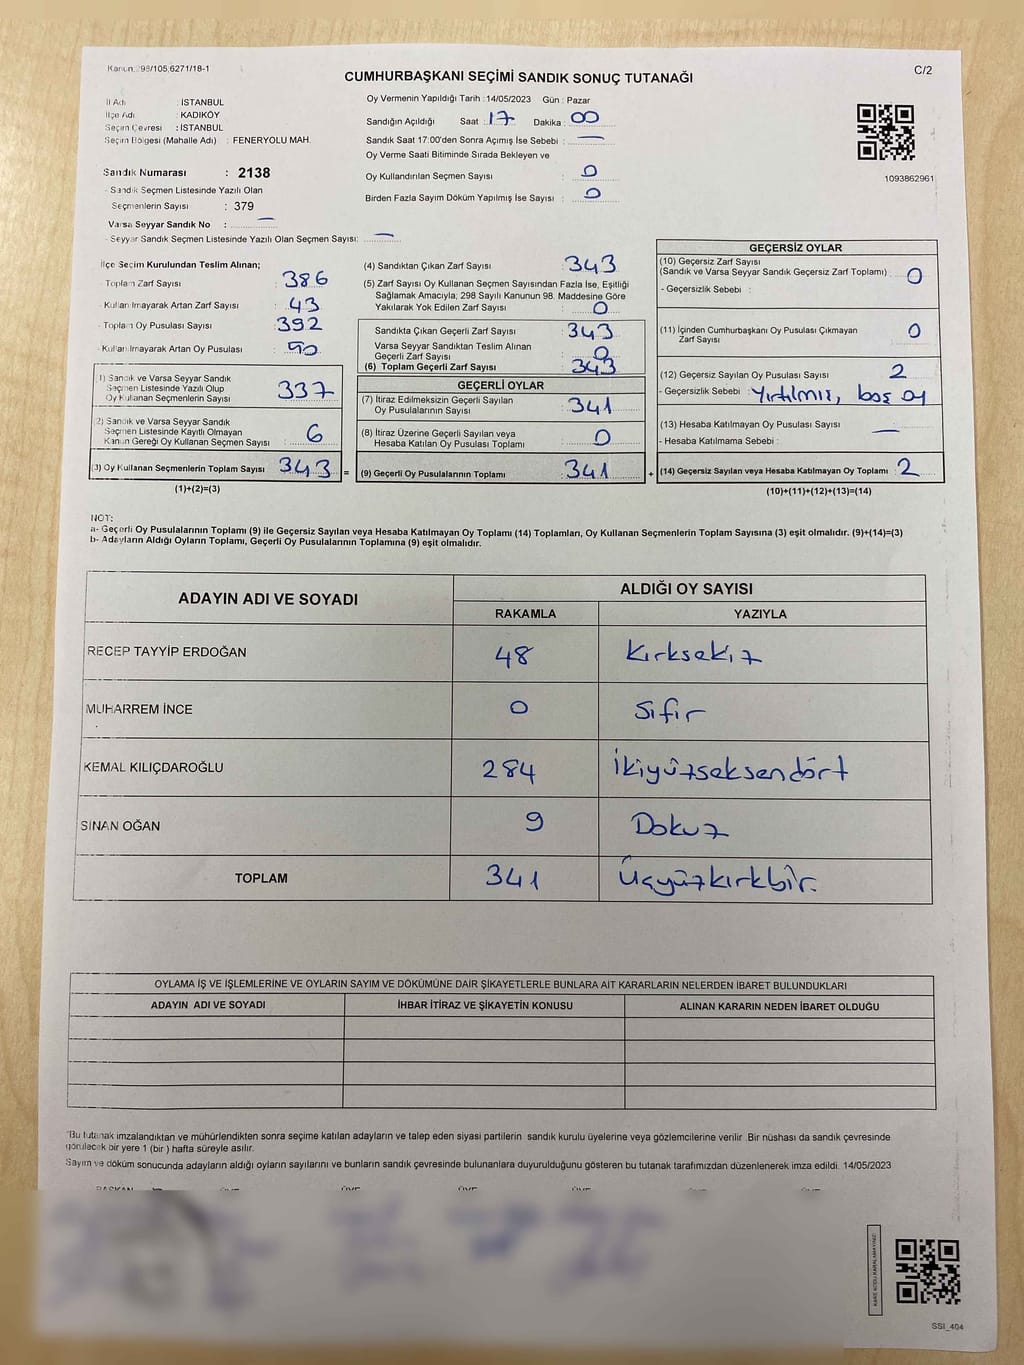 Kanun:298/105,6271/18-1
C/2
CUMHURBAŞKANI SEÇİMİ SANDIK SONUÇ TUTANAĞI
İl Adı : İSTANBUL
İlçe Adı : KADIKÖY
Seçim Çevresi : İSTANBUL
Seçim Bölgesi (Mahalle Adı) : FENERYOLU MAH.
Sandık Numarası : 2138
- Sandık Seçmen Listesinde Yazılı Olan
Seçmenlerin Sayısı : 379
Varsa Seyyar Sandık No : —
- Seyyar Sandık Seçmen Listesinde Yazılı Olan Seçmen Sayısı: —
Oy Vermenin Yapıldığı Tarih :14/05/2023 Gün : Pazar
Sandığın Açıldığı Saat : 17 Dakika : 00
Sandık Saat 17:00'den Sonra Açımış İse Sebebi : —
Oy Verme Saati Bitiminde Sırada Bekleyen ve
Oy Kullandırılan Seçmen Sayısı : 0
Birden Fazla Sayım Döküm Yapılmış İse Sayısı : 0
1093862961
İlçe Seçim Kurulundan Teslim Alınan;
- Toplam Zarf Sayısı : 386
- Kullanılmayarak Artan Zarf Sayısı : 43
- Toplam Oy Pusulası Sayısı : 392
- Kullanılmayarak Artan Oy Pusulası :
(1) Sandık ve Varsa Seyyar Sandık
Seçmen Listesinde Yazılı Olup
Oy Kullanan Seçmenlerin Sayısı : 337
(2) Sandık ve Varsa Seyyar Sandık
Seçmen Listesinde Kayıtlı Olmayan
Kanun Gereği Oy Kullanan Seçmen Sayısı : 6
(3) Oy Kullanan Seçmenlerin Toplam Sayısı : 343 =
(1)+(2)=(3)
(4) Sandıktan Çıkan Zarf Sayısı : 343
(5) Zarf Sayısı Oy Kullanan Seçmen Sayısından Fazla İse, Eşitliği
Sağlamak Amacıyla; 298 Sayılı Kanunun 98. Maddesine Göre
Yakılarak Yok Edilen Zarf Sayısı : 0
Sandıkta Çıkan Geçerli Zarf Sayısı : 343
Varsa Seyyar Sandıktan Teslim Alınan
Geçerli Zarf Sayısı : 0
(6) Toplam Geçerli Zarf Sayısı : 343
GEÇERLİ OYLAR
(7) İtiraz Edilmeksizin Geçerli Sayılan
Oy Pusulalarının Sayısı : 341
(8) İtiraz Üzerine Geçerli Sayılan veya
Hesaba Katılan Oy Pusulası Toplamı : 0
(9) Geçerli Oy Pusulalarının Toplamı : 341 +
GEÇERSİZ OYLAR
(10) Geçersiz Zarf Sayısı
(Sandık ve Varsa Seyyar Sandık Geçersiz Zarf Toplamı) : 0
- Geçersizlik Sebebi :
(11) İçinden Cumhurbaşkanı Oy Pusulası Çıkmayan
Zarf Sayısı : 0
(12) Geçersiz Sayılan Oy Pusulası Sayısı : 2
- Geçersizlik Sebebi : Yırtılmış, boş oy
(13) Hesaba Katılmayan Oy Pusulası Sayısı : —
- Hesaba Katılmama Sebebi :
(14) Geçersiz Sayılan veya Hesaba Katılmayan Oy Toplamı : 2
(10)+(11)+(12)+(13)=(14)
NOT:
a- Geçerli Oy Pusulalarının Toplamı (9) ile Geçersiz Sayılan veya Hesaba Katılmayan Oy Toplamı (14) Toplamları, Oy Kullanan Seçmenlerin Toplam Sayısına (3) eşit olmalıdır. (9)+(14)=(3)
b- Adayların Aldığı Oyların Toplamı, Geçerli Oy Pusulalarının Toplamına (9) eşit olmalıdır.
ADAYIN ADI VE SOYADI ALDIĞI OY SAYISI
RAKAMLA YAZIYLA
RECEP TAYYİP ERDOĞAN 48 Kırksekiz
MUHARREM İNCE 0 Sıfır
KEMAL KILIÇDAROĞLU 284 İkiyüzseksendört
SİNAN OĞAN 9 Dokuz
TOPLAM 341 Üçyüzkırkbir.
OYLAMA İŞ VE İŞLEMLERİNE VE OYLARIN SAYIM VE DÖKÜMÜNE DAİR ŞİKAYETLERLE BUNLARA AİT KARARLARIN NELERDEN İBARET BULUNDUKLARI
ADAYIN ADI VE SOYADI İHBAR İTİRAZ VE ŞİKAYETİN KONUSU ALINAN KARARIN NEDEN İBARET OLDUĞU
"Bu tutanak imzalandıktan ve mühürlendikten sonra seçime katılan adayların ve talep eden siyasi partilerin sandık kurulu üyelerine veya gözlemcilerine verilir .Bir nüshası da sandık çevresinde
görülecek bir yere 1 (bir ) hafta süreyle asılır.
Sayım ve döküm sonucunda adayların aldığı oyların sayılarını ve bunların sandık çevresinde bulunanlara duyurulduğunu gösteren bu tutanak tarafımızdan düzenlenerek imza edildi. 14/05/2023
BAŞKAN ÜYE ÜYE ÜYE ÜYE ÜYE ÜYE
KARE KODU KARALAMAYINIZ!
SSI_404